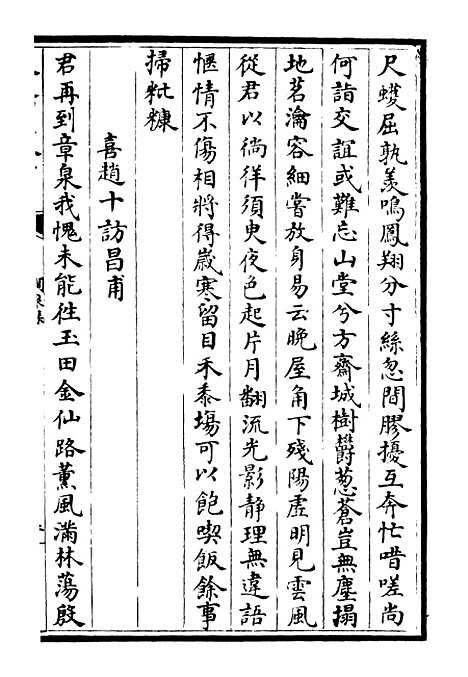 尺蠖屈孰羨鳴鳳翔分寸絲忽間膠擾互奔忙喈嗟尚
何詣交誼或難忘山堂兮方齋城樹欝葱蒼豈無塵塌
地茗瀹容細嘗放身易云晚屋角下殘陽虛明見雲風
從君以徜徉須臾夜色起片月翻流光影静理無違語
愜情不傷相將得嵗寒留目禾黍塲可以飽喫飯餘事
掃粃糠
喜趙十訪昌甫
君再到章泉我愧未能徃玉田金仙路薫風滿林蕩殷